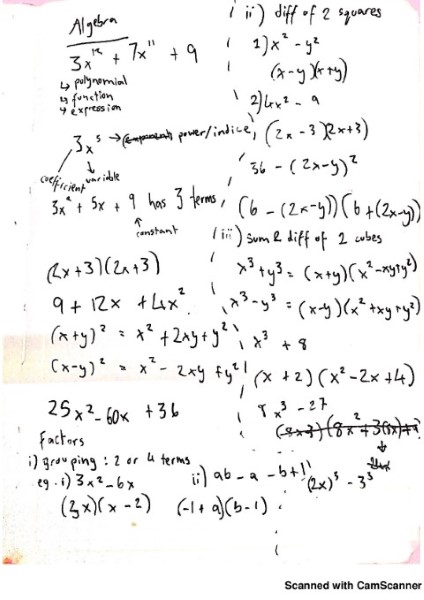 Algebra
3x¹² + 7x¹¹ + 9
↳ polynomial
↳ function
↳ expression
3x⁵ → power/indice
coefficient variable
3x² + 5x + 9 has 3 terms
constant
(2x+3)(2x+3)
9 + 12x + 4x²
(x+y)² = x² + 2xy + y²
(x-y)² = x² - 2xy + y²
25x² - 60x + 36
Factors
i) grouping : 2 or 4 terms
eg. i) 3x² - 6x
(3x)(x-2)
ii) ab - a - b + 1
(-1 + a)(b-1)
ii) diff of 2 squares
1) x² - y²
(x-y)(x+y)
2) 4x² - 9
(2x-3)(2x+3)
36 - (2x-y)²
(6 - (2x-y))(6 + (2x-y))
iii) sum & diff of 2 cubes
x³+y³ = (x+y)(x²-xy+y²)
x³-y³ = (x-y)(x²+xy+y²)
x³ + 8
(x+2)(x²-2x+4)
8x³ - 27
(2x)³ - 3³
Scanned with CamScanner